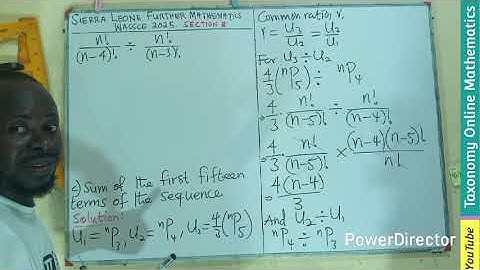 SIERRA LEONE FURTHER MATHEMATICS
WASSCE 2025. SECTION B
n!/(n-4)! ÷ n!/(n-3)!
c) Sum of the first fifteen
terms of the sequence
Solution:
U₁ = ⁿP₃, U₂ = ⁿP₄, U₃ = 4/3(ⁿP₅)
Common ratio, r.
r = U₃/U₂ = U₂/U₁
For U₃ ÷ U₂
4/3(ⁿP₅) ÷ ⁿP₄
4/3 · n!/(n-5)! ÷ n!/(n-4)!
4/3 · n!/(n-5)! × (n-4)(n-5)!/n!
4(n-4)/3
And U₂ ÷ U₁
ⁿP₄ ÷ ⁿP₃
PowerDirector
YouTube Taxonomy Online Mathematics